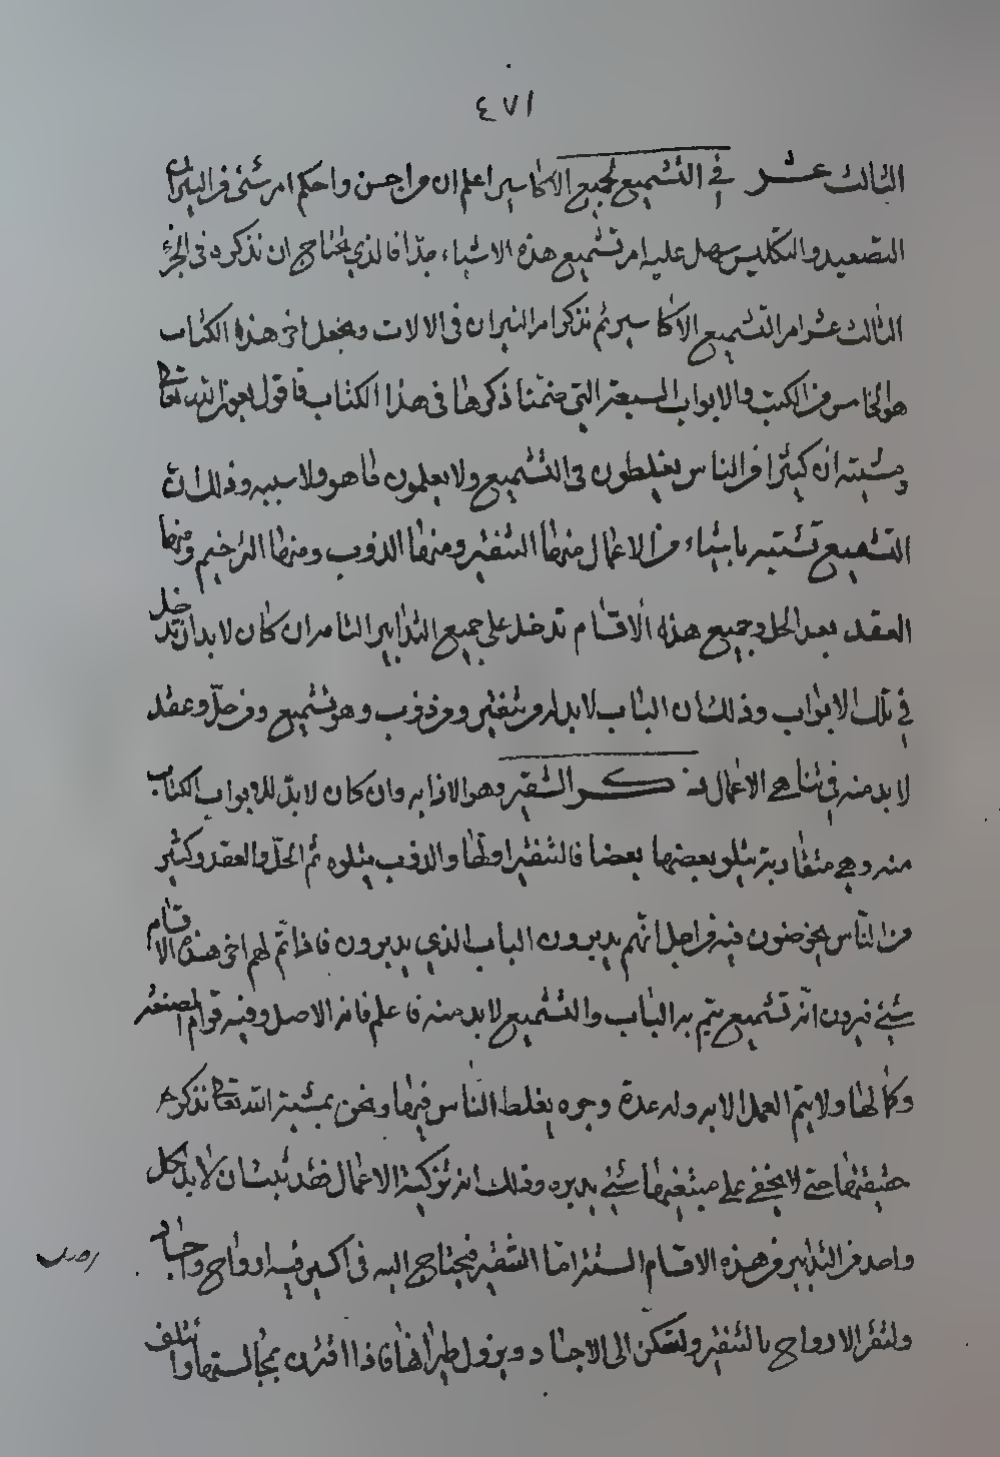 ٤٧١
الثالث عشر في التشميع لجميع الاكاسير اعلم ان من احسن واحكم امر شئ من النيران
التصعيد والتكليس سهل عليه امر تشميع هذه الاشياء جدّا فالذي يحتاج ان نذكره في الجزء
الثالث عشر امر التشميع الاكاسير ثم نذكر امر النيران في الالات ونجعل اخر هذا الكتاب
هو الخامس من الكتب والابواب السبعة التي ضمّنا ذكرها في هذا الكتاب فاقول بعون الله تعالى
ومشيته ان كثيرا من الناس يغلطون في التشميع ولا يعلمون ما هو ولا سببه وذلك ان
التشميع تشتبه باشياء من الاعمال منها التنقية ومنها الذوب ومنها الترخيم ومنها
العقد بعد الحل وجميع هذه الاقسام تدخل على جميع التدابير التامه ان كان لا بد ان تدخل
في تلك الابواب وذلك ان الباب لا بد له من تنقية ومن ذوب وهو تشميع ومن حلّ وعقد
لا بد منه في تناهي الاعمال ذكر التنقية وهو الاذابه وان كان لا بدّ للابواب الكتاب
منه وهي متقاربة يتلو بعضها بعضا فالتنقية اولها والذوب يتلوه ثم الحلّ والعقد وكثير
من الناس يخوضون فيه من اجل انهم يدبرون الباب الذي يدبرون فاذا تم لهم اخر هذه الاقسام
شيئ فيرون انّه تشميع يتم به الباب والتشميع لا بد منه فاعلم فانه الاصل وفيه قوام الصنعة
وكمالها ولا يتم العمل الا به وله عدة وجوه يغلط الناس فيها ونحن بمشية الله تعالى نذكره
حقيقتها حتى لا يخفى على مبتغيها شيئ يدبره وذلك انه تزكية الاعمال فقد بينا ان لا بد لكل
واحد من التدابير من هذه الاقسام الستة امّا التنقية فيحتاج اليه في اكسير فيه ارواح واجساد
ولتقر الارواح بالتنقية ولتسكن الى الاجساد ويزول طيرانها فاذا اقترن بمجالستها وائتلف